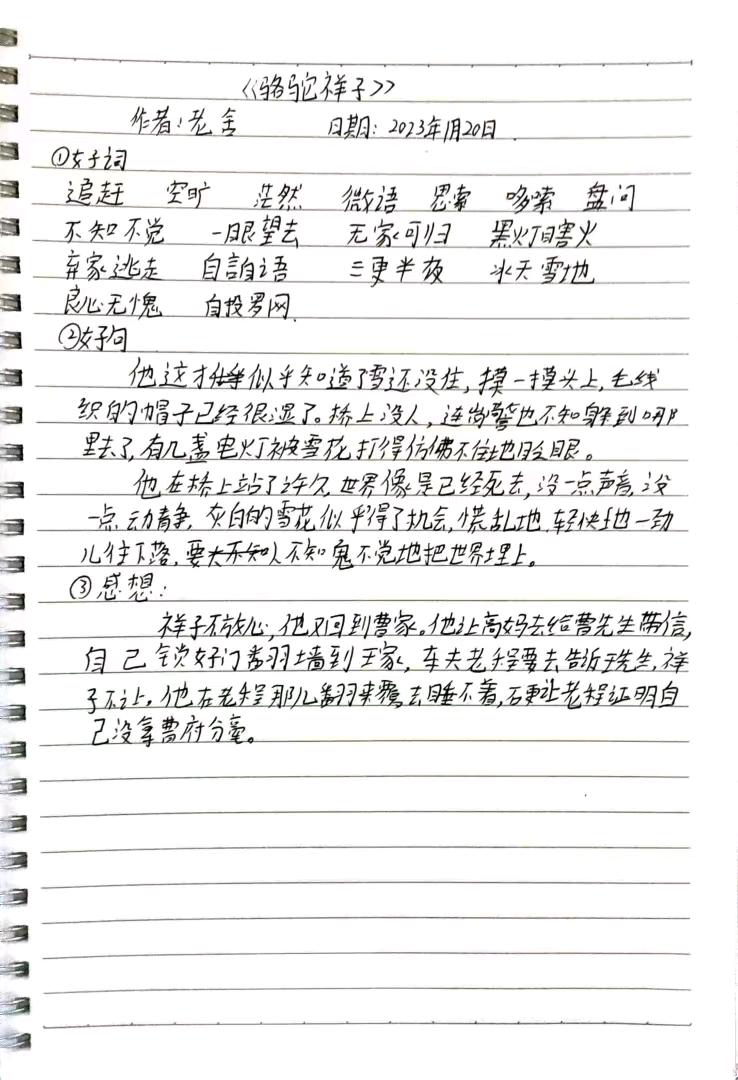 《骆驼祥子》
作者:老舍 日期:2023年1月20日.
①好词
追赶 空旷 茫然 微语 思索 哆嗦 盘问
不知不觉 一眼望去 无家可归 黑灯瞎火
弃家逃走 自言自语 三更半夜 冰天雪地
良心无愧 自投罗网.
②好句
他这才似乎知道了雪还没住,摸一摸头上,毛线
织的帽子已经很湿了。桥上没人,连岗警也不知躲到哪
里去了,有几盏电灯被雪花打得仿佛不住地眨眼。
他在桥上站了许久,世界像是已经死去,没一点声音,没
一点动静,灰白的雪花似乎得了机会,慌乱地,轻快地一劲
儿往下落,要人不知鬼不觉地把世界埋上。
③感想:
祥子不放心,他又回到曹家。他让高妈去给曹先生带信,
自己锁好门翻墙到王家,车夫老程要去告诉王先生,祥
子不让。他在老程那儿翻来覆去睡不着,硬让老程证明自
己没拿曹府分毫。